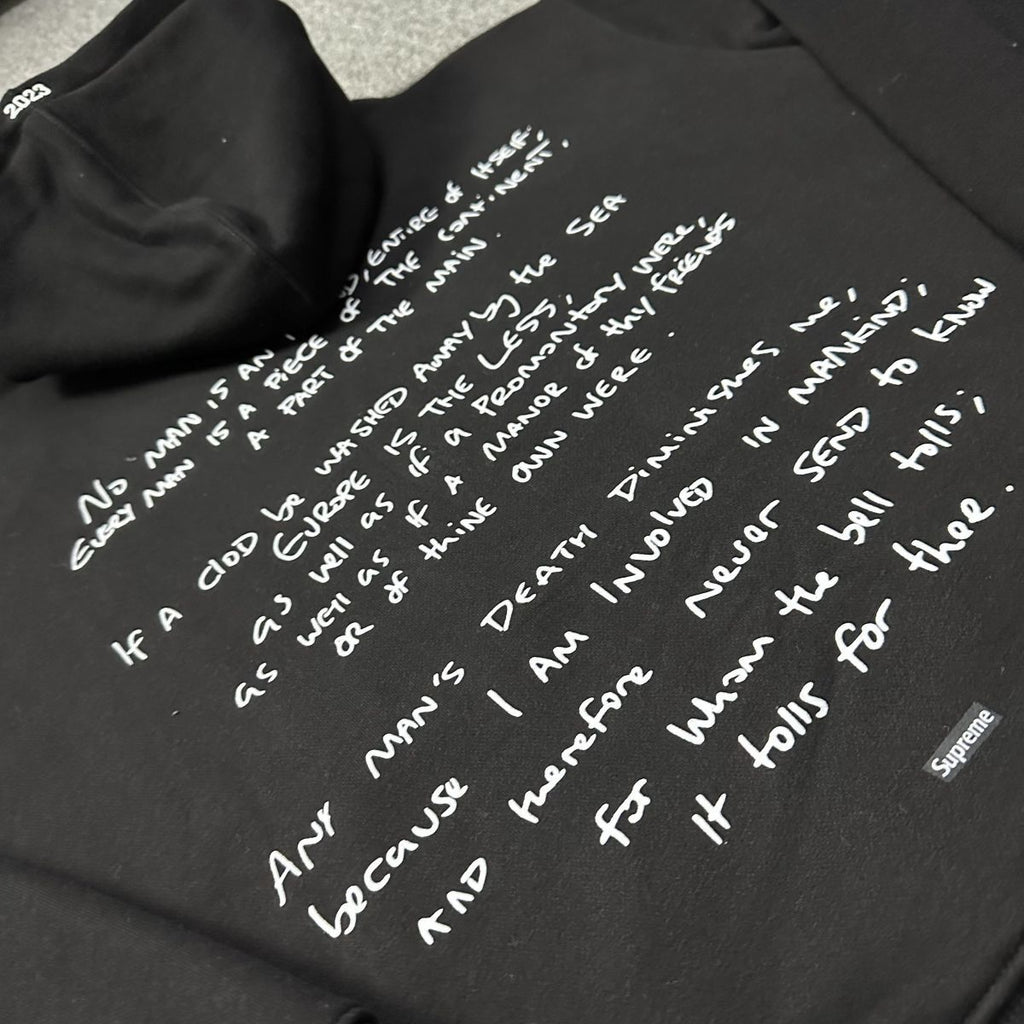 2023
NO MAN IS AN D, ENTIRE of ITSELF.
EVERY MAN IS A PIECE OF THE CONTINENT,
A PART OF THE MAIN.
IF A CLOD be WASHED AWAY by the SEA
EUROPE IS THE LESS,
as well as if a PROMONTORY WERE,
as well as IF A MANOR of thy FRIENDS
OR of thine OWN WERE.
ANY MAN'S DEATH DIMINISHES me,
because I AM INVOLVED IN MANKIND;
AND therefore never SEND to KNOW
for whom the bell tolls;
It tolls for thee.
Supreme